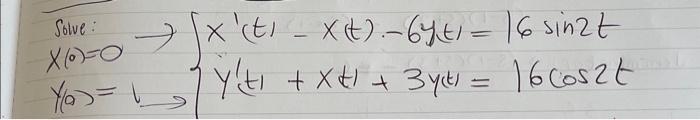 Solve:
X(0)=0 → { X'(t) - X(t) - 6y(t) = 16 sin2t
Y(0)=1 → Y'(t) + X(t) + 3y(t) = 16cos2t